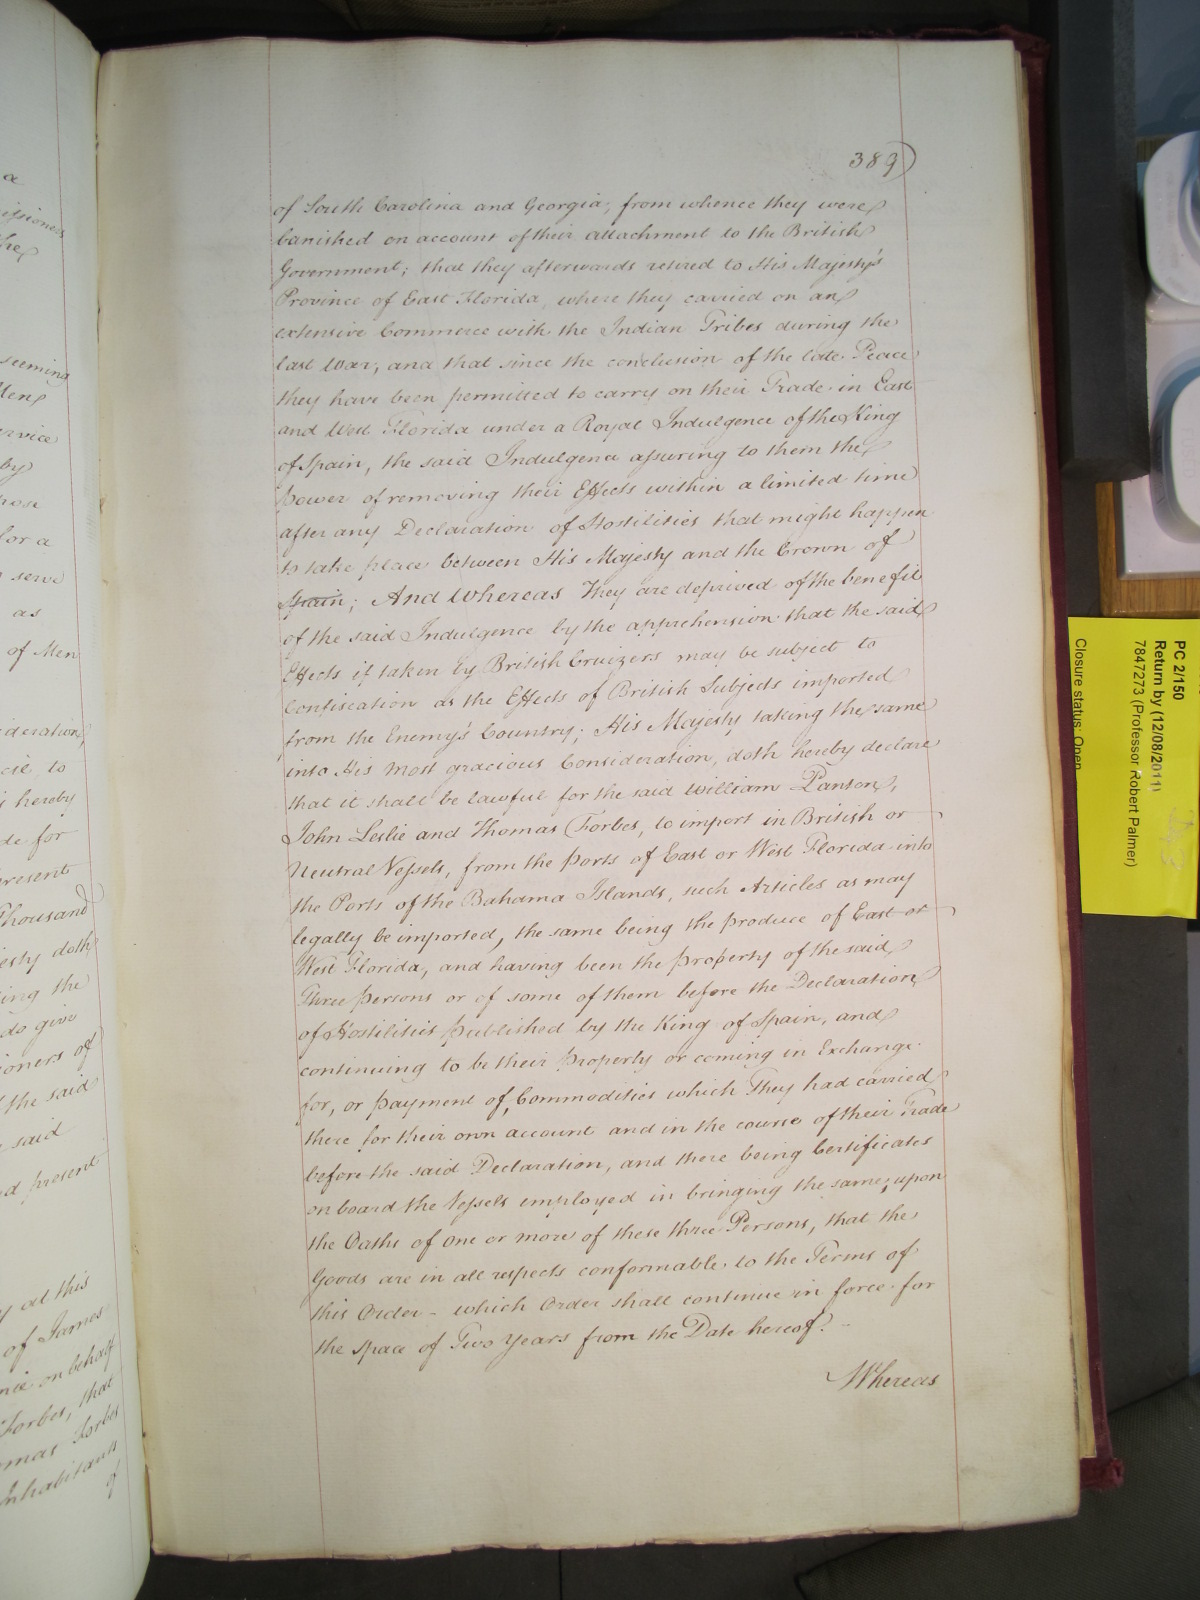 389)
of South Carolina and Georgia; from whence they were
banished on account of their attachment to the British
Government; that they afterwards retired to His Majesty's
Province of East Florida, where they carried on an
extensive Commerce with the Indian Tribes during the
last War; and that since the conclusion of the late Peace
they have been permitted to carry on their Trade in East
and West Florida under a Royal Indulgence of the King
of Spain, the said Indulgence assuring to them the
power of removing their Effects within a limited time
after any Declaration of Hostilities that might happen
to take place between His Majesty and the Crown of
Spain; And Whereas They are deprived of the benefit
of the said Indulgence by the apprehension that the said
Effects if taken by British Cruizers may be subject to
Confiscation as the Effects of British Subjects imported
from the Enemy's Country; His Majesty taking the same
into His most gracious Consideration, doth hereby declare
that it shall be lawful for the said William Panton,
John Leslie and Thomas Forbes, to import in British or
Neutral Vessels, from the Ports of East or West Florida into
the Ports of the Bahama Islands, such Articles as may
legally be imported, the same being the produce of East or
West Florida, and having been the property of the said
Three persons or of some of them before the Declaration
of Hostilities published by the King of Spain, and
continuing to be their property or coming in Exchange
for, or payment of, Commodities which They had carried
there for their own account and in the course of their Trade
before the said Declaration, and there being Certificates
on board the Vessels employed in bringing the same, upon
the Oaths of one or more of these three Persons, that the
Goods are in all respects conformable to the Terms of
this Order - which Order shall continue in force for
the space of Two Years from the Date hereof. -
Whereas
a
the
seeming
Men
by
for a
serve
as
of Men
to
hereby
for
present
Thousand
doth
the
do give
of
the said
said
present
at this
of James
on behalf
Forbes, that
Forbes
Inhabitants
of
PC 2/150
Return by (12/08/2011)
7847273 (Professor Robert Palmer)
Closure status: Open